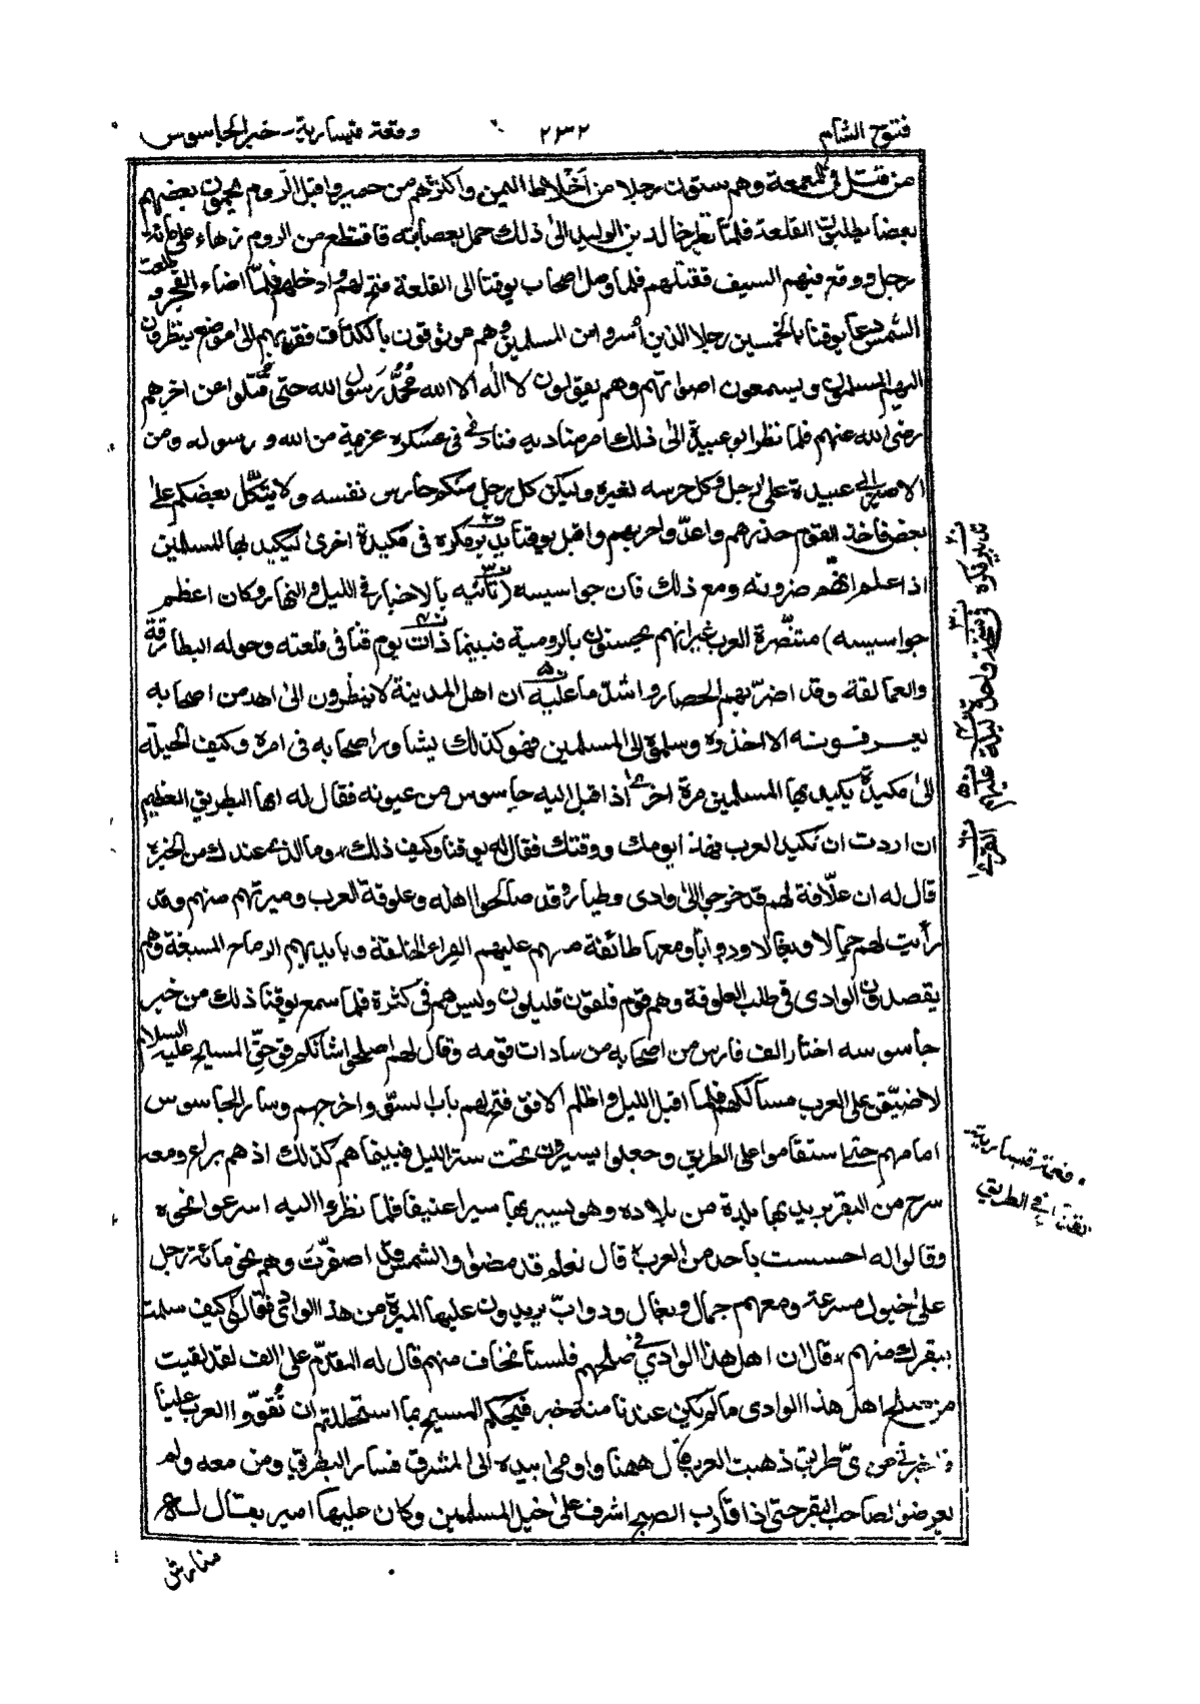 فتوح الشام
٢٣٢
وقعة قيسارية - خبر الجاسوس
من قتل في المعمعة وهم ستون رجلا من أخلاط اليمن وأكثرهم من حمير واقبل الروم بعضهم
بعضا يطلبون القلعة فلما نظر خالد بن الوليد الى ذلك حمل بعصابته فاقتطع من الروم زهاء على مائة
رجل ووقع فيهم السيف فقتلهم فلما وصل اصحاب يوقنا الى القلعة فتح لهم وادخلهم فلمّا اضاء الفجر و طلعت
الشمس دعا يوقنا بالخمسين رجلا الذين أسروا من المسلمين وهم موثوقون بالكتاف فقربهم الى موضع ينظرون
اليهم المسلمون ويسمعون اصواتهم وهم يقولون لا اله الا الله محمّد رسول الله حتى قتلوا عن اخرهم
رضى الله عنهم فلما نظر ابو عبيدة الى ذلك امر مناديه فنادى في عسكره عزيمة من الله و رسوله ومن
الامير ابي عبيدة على رجل وكل حرسه لغيره وليكن كل رجل منكم حارس نفسه ولا يتكّل بعضكم على
بعض فاخذ القوم حذرهم واعدّوا حربهم واقبل يوقنا يدبر مكره في مكيدة اخرى ليكيد بها المسلمين
اذا علم انهّم ضرونه ومع ذلك فان جواسيسه (تأتيه بالاخبار في الليل والنهار وكان اعظم
جواسيسه) متنصّرة العرب غير انهم يحسنون بالرومية فبينما ذات يوم قنا في قلعته وحوله البطارقة
والعمالقة وقد اضرّ بهم الحصار واشدّ ما عليه ان اهل المدينة لا ينظرون الى احد من اصحابه
يعرفونه الا اخذوه وسلموه الى المسلمين فهو كذلك يشاور اصحابه في امره وكيف الحيلة
الى مكيدة يكيد بها المسلمين مرة اخرى اذ اقبل اليه جاسوس من عيونه فقال له ايها البطريق العظيم
ان اردت ان تكيد العرب فهذا يومك ووقتك فقال له يوقنا وكيف ذلك، وما الذي عندك من الخبره
قال له ان علّافة لهم قد خرجوا الى وادى وطياره وقد صالحوا اهله وعلوفة العرب وميرتهم منهم وقد
رأيت لهم جمالا وبغالا ودوابا ومعها طائفة منهم عليهم الفراء الخلقة وبايديهم الرماح المسبغة وهم
يقصدون الوادى في طلب العلوفة وهم قوم فلقون قليلون وليس هم في كثرة فلما سمع يوقنا ذلك من خبر
جاسوسه اختار الف فارس من اصحابه من سادات قومه وقال لهم اصلحوا شأنكم فوحقّ المسيح عليه السلام
لاضيّقن على العرب مسالكهم فلما اقبل الليل واظلم الافق فتح لهم باب السرّ واخرجهم وسار الجاسوس
امامهم حتى استقاموا على الطريق وجعلوا يسيرون تحت ستر الليل فبينما هم كذلك اذ هم براع ومعه
سرح من البقر يريد بها بلدة من بلاده وهو يسير بها سيرا عنيفا فلما نظروا اليه اسرعوا نحوه
وقالوا له احسست باحد من العرب قال نعم قد مضوا والشمس قد اصفرّت وهم نحو مائة رجل
على خيول مسرعة ومعهم جمال وبغال ودوابّ يريدون عليها الميرة من هذا الوادي فقال له كيف سلمت
ببقرك منهم، قال ان اهل هذا الوادي في صلحهم فلسنا نخاف منهم قال له المقدّم على الالف لقد لقيت
من صلح اهل هذا الوادى ما لم يكن عندنا منه خبر فيحكم المسيح بما استحللتم ان تُقوّوا العرب علينا
فاخبرني من ايّ طريق ذهبت العرب قال ههنا واومى بيده الى المشرق فسار البطريق ومن معه ولم
يعرضوا لصاحب البقر حتى اذا قارب الصبح اشرف على خيل المسلمين وكان عليها امير يقال له
مناوش
وقعة قيسارية
في الطريق